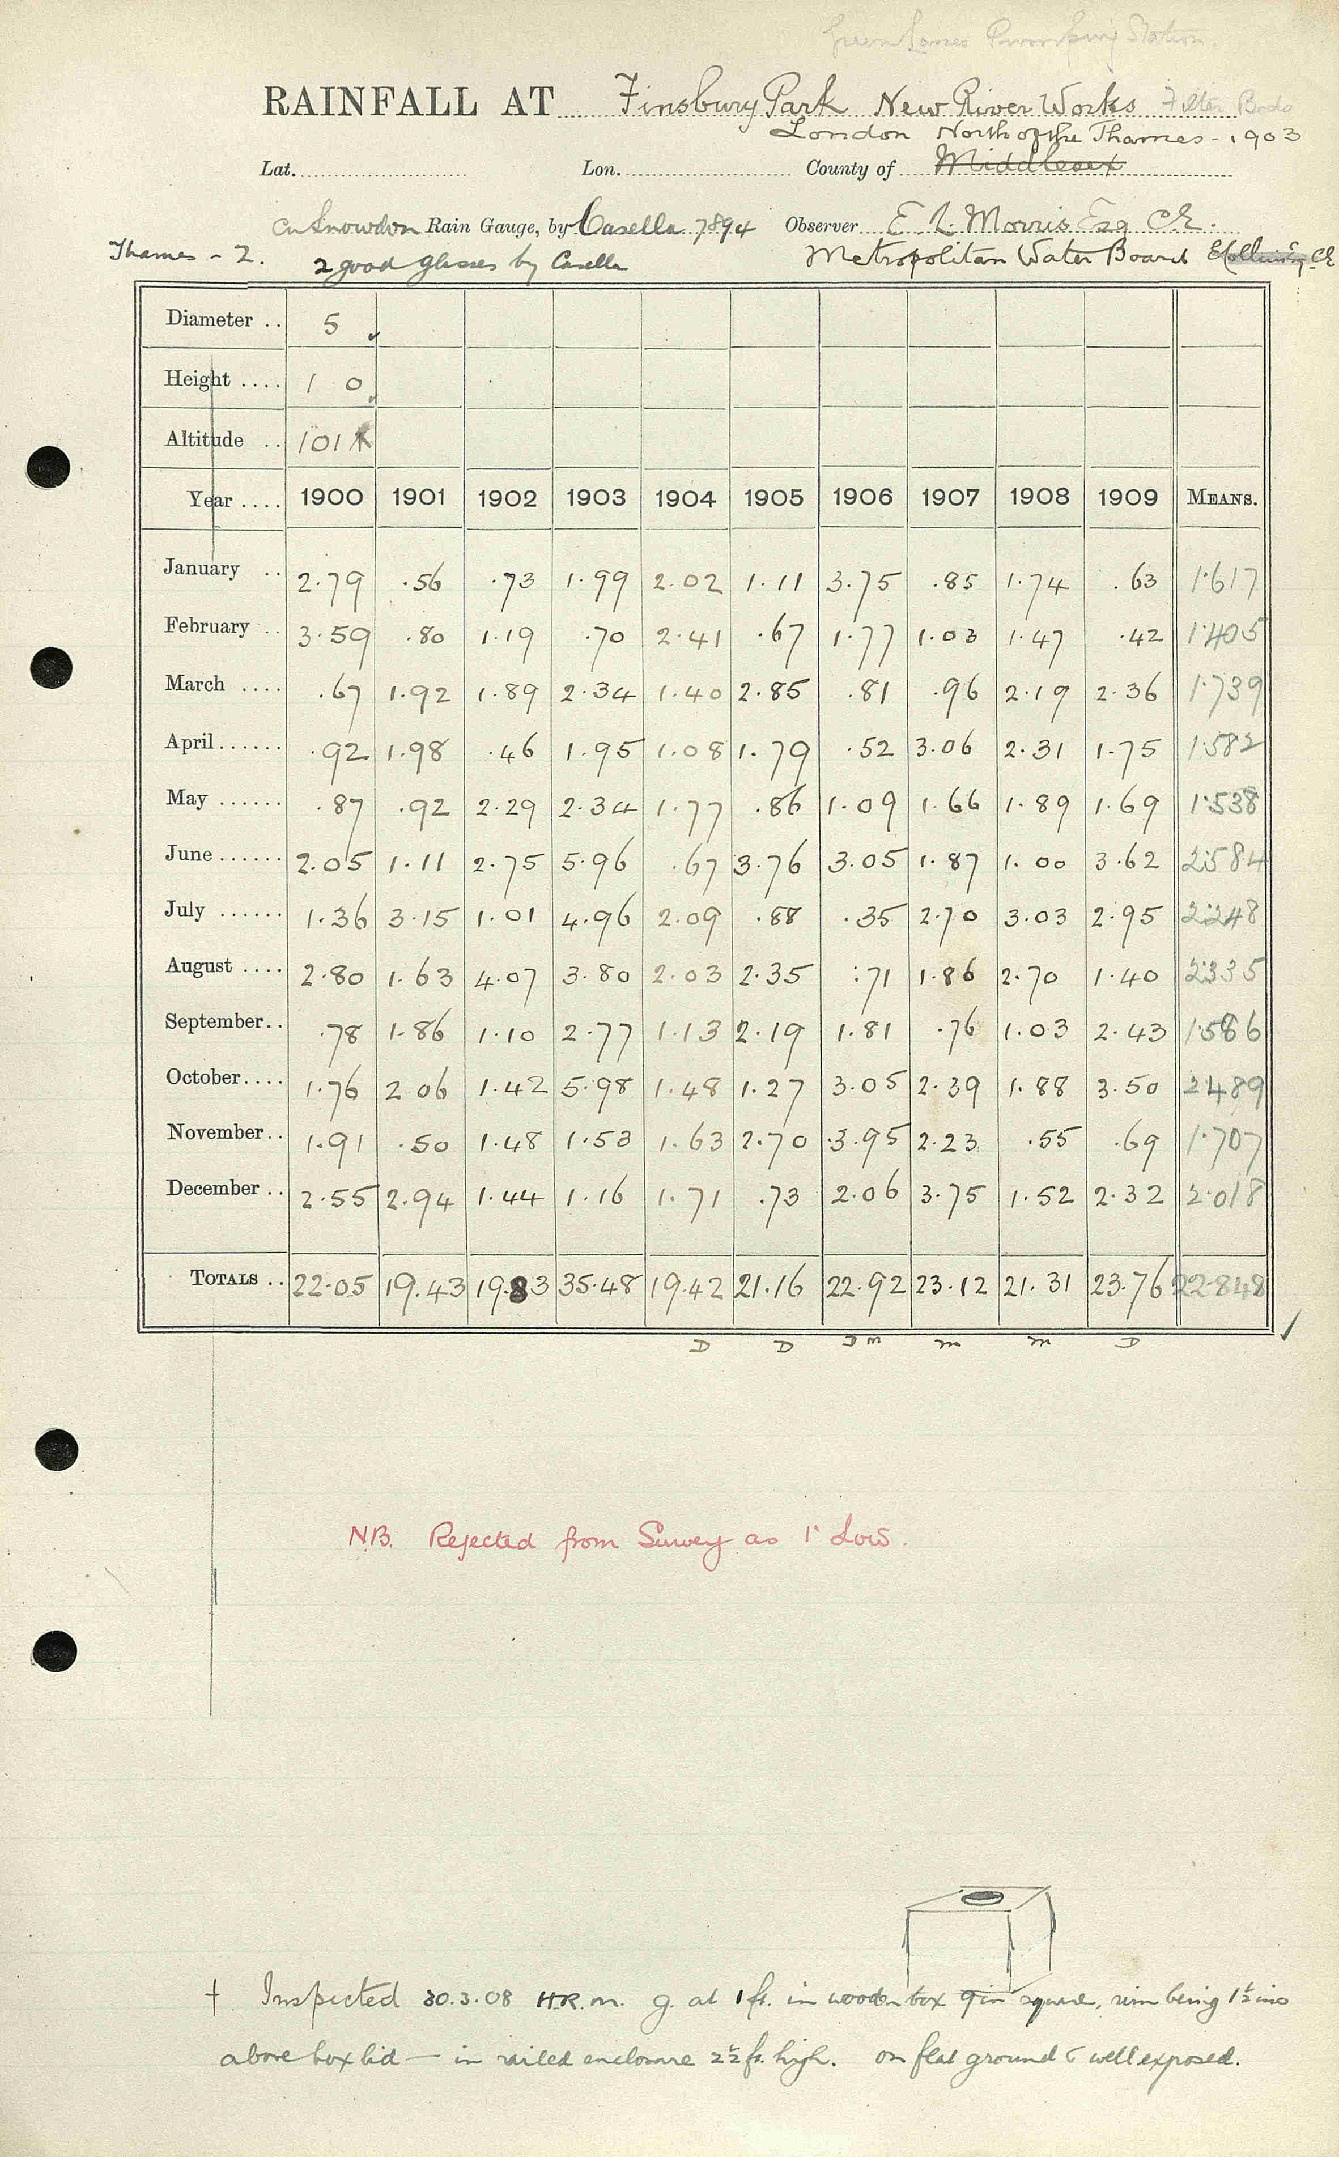 Green Lanes Pumping Station.
RAINFALL AT Finsbury Park New River Works Filter Beds
London North of the Thames - 1903
Lat. Lon. County of Middlesex
Cu Snowdon Rain Gauge, by Casella 7894 Observer E L Morris Esq CE.
Thames - 2. 2 good glasses by Casella Metropolitan Water Board CE
Diameter .. 5
Height .... 1 0
Altitude .. 101
Year .... 1900 1901 1902 1903 1904 1905 1906 1907 1908 1909 MEANS.
January .. 2.79 .56 .73 1.99 2.02 1.11 3.75 .85 1.74 .63 1.617
February .. 3.59 .80 1.19 .70 2.41 .67 1.77 1.03 1.47 .42 1.405
March .... .67 1.92 1.89 2.34 1.40 2.85 .81 .96 2.19 2.36 1.739
April...... .92 1.98 .46 1.95 1.08 1.79 .52 3.06 2.31 1.75 1.582
May ...... .87 .92 2.29 2.34 1.77 .86 1.09 1.66 1.89 1.69 1.538
June ...... 2.05 1.11 2.75 5.96 .67 3.76 3.05 1.87 1.00 3.62 2.584
July ...... 1.36 3.15 1.01 4.96 2.09 .88 .35 2.70 3.03 2.95 2.248
August .... 2.80 1.63 4.07 3.80 2.03 2.35 .71 1.86 2.70 1.40 2.335
September.. .78 1.86 1.10 2.77 1.13 2.19 1.81 .76 1.03 2.43 1.586
October.... 1.76 2 06 1.42 5.98 1.48 1.27 3.05 2.39 1.88 3.50 2.489
November.. 1.91 .50 1.48 1.53 1.63 2.70 3.95 2.23 .55 .69 1.707
December .. 2.55 2.94 1.44 1.16 1.71 .73 2.06 3.75 1.52 2.32 2.018
TOTALS .. 22.05 19.43 19.83 35.48 19.42 21.16 22.92 23.12 21.31 23.76 22.848
D D D m m m D
N.B. Rejected from Survey as 1" Low.
† Inspected 30.3.08 H.R.M. g. at 1 ft. in wooden box 9 in square, rim being 1½ ins
above box lid — in railed enclosure 2½ ft. high. on flat ground & well exposed.